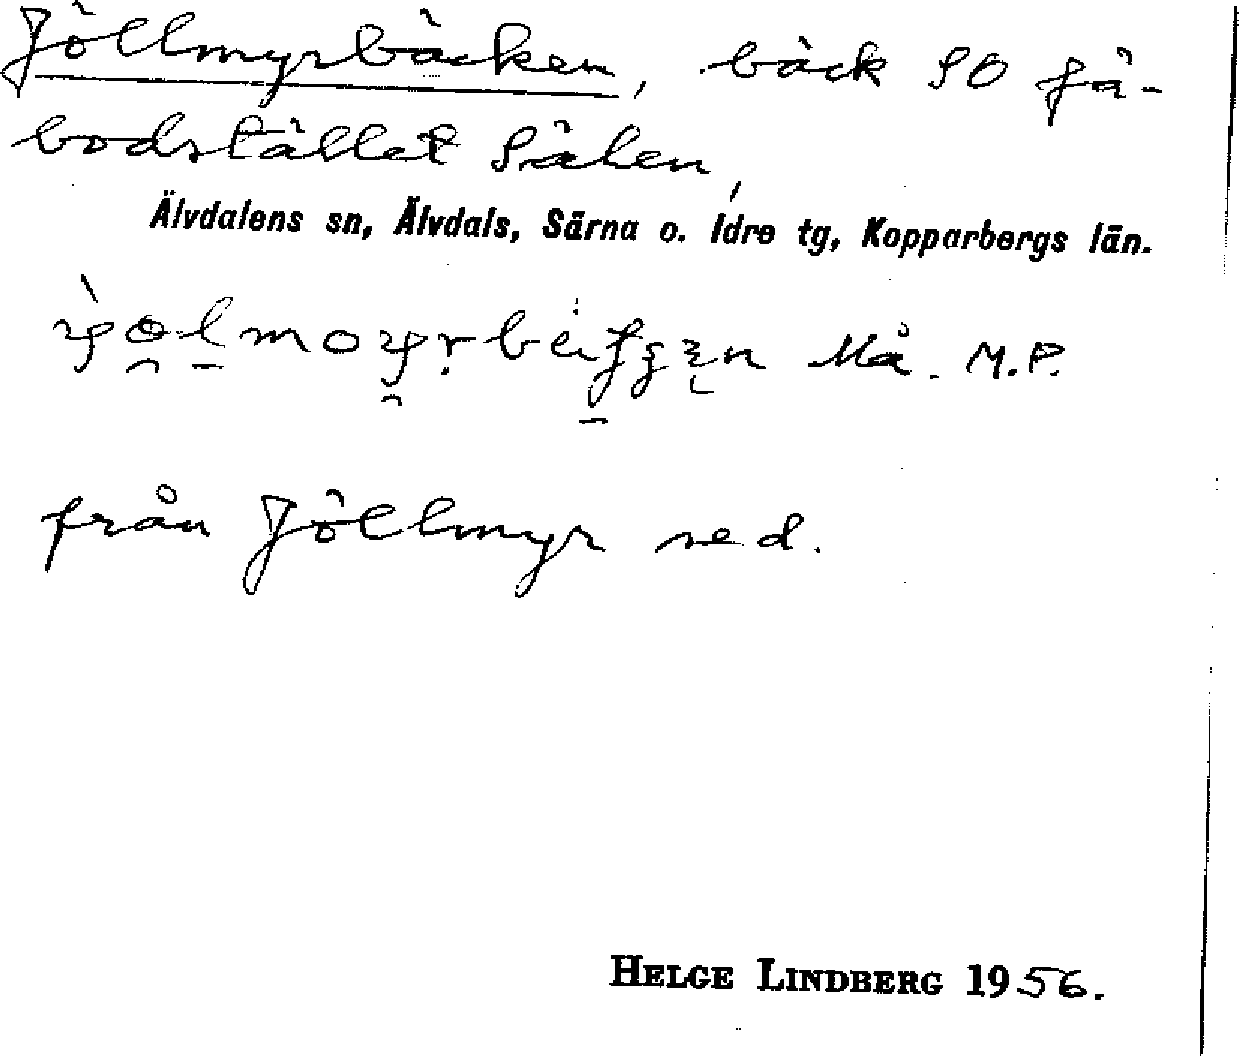 Jöllmyrbäcken, bäck SO fä-
bodstället Sälen,
Älvdalens sn, Älvdals, Särna o. Idre tg, Kopparbergs län.
Må. M.P.
från Jöllmyr ned.
HELGE LINDBERG 1956.